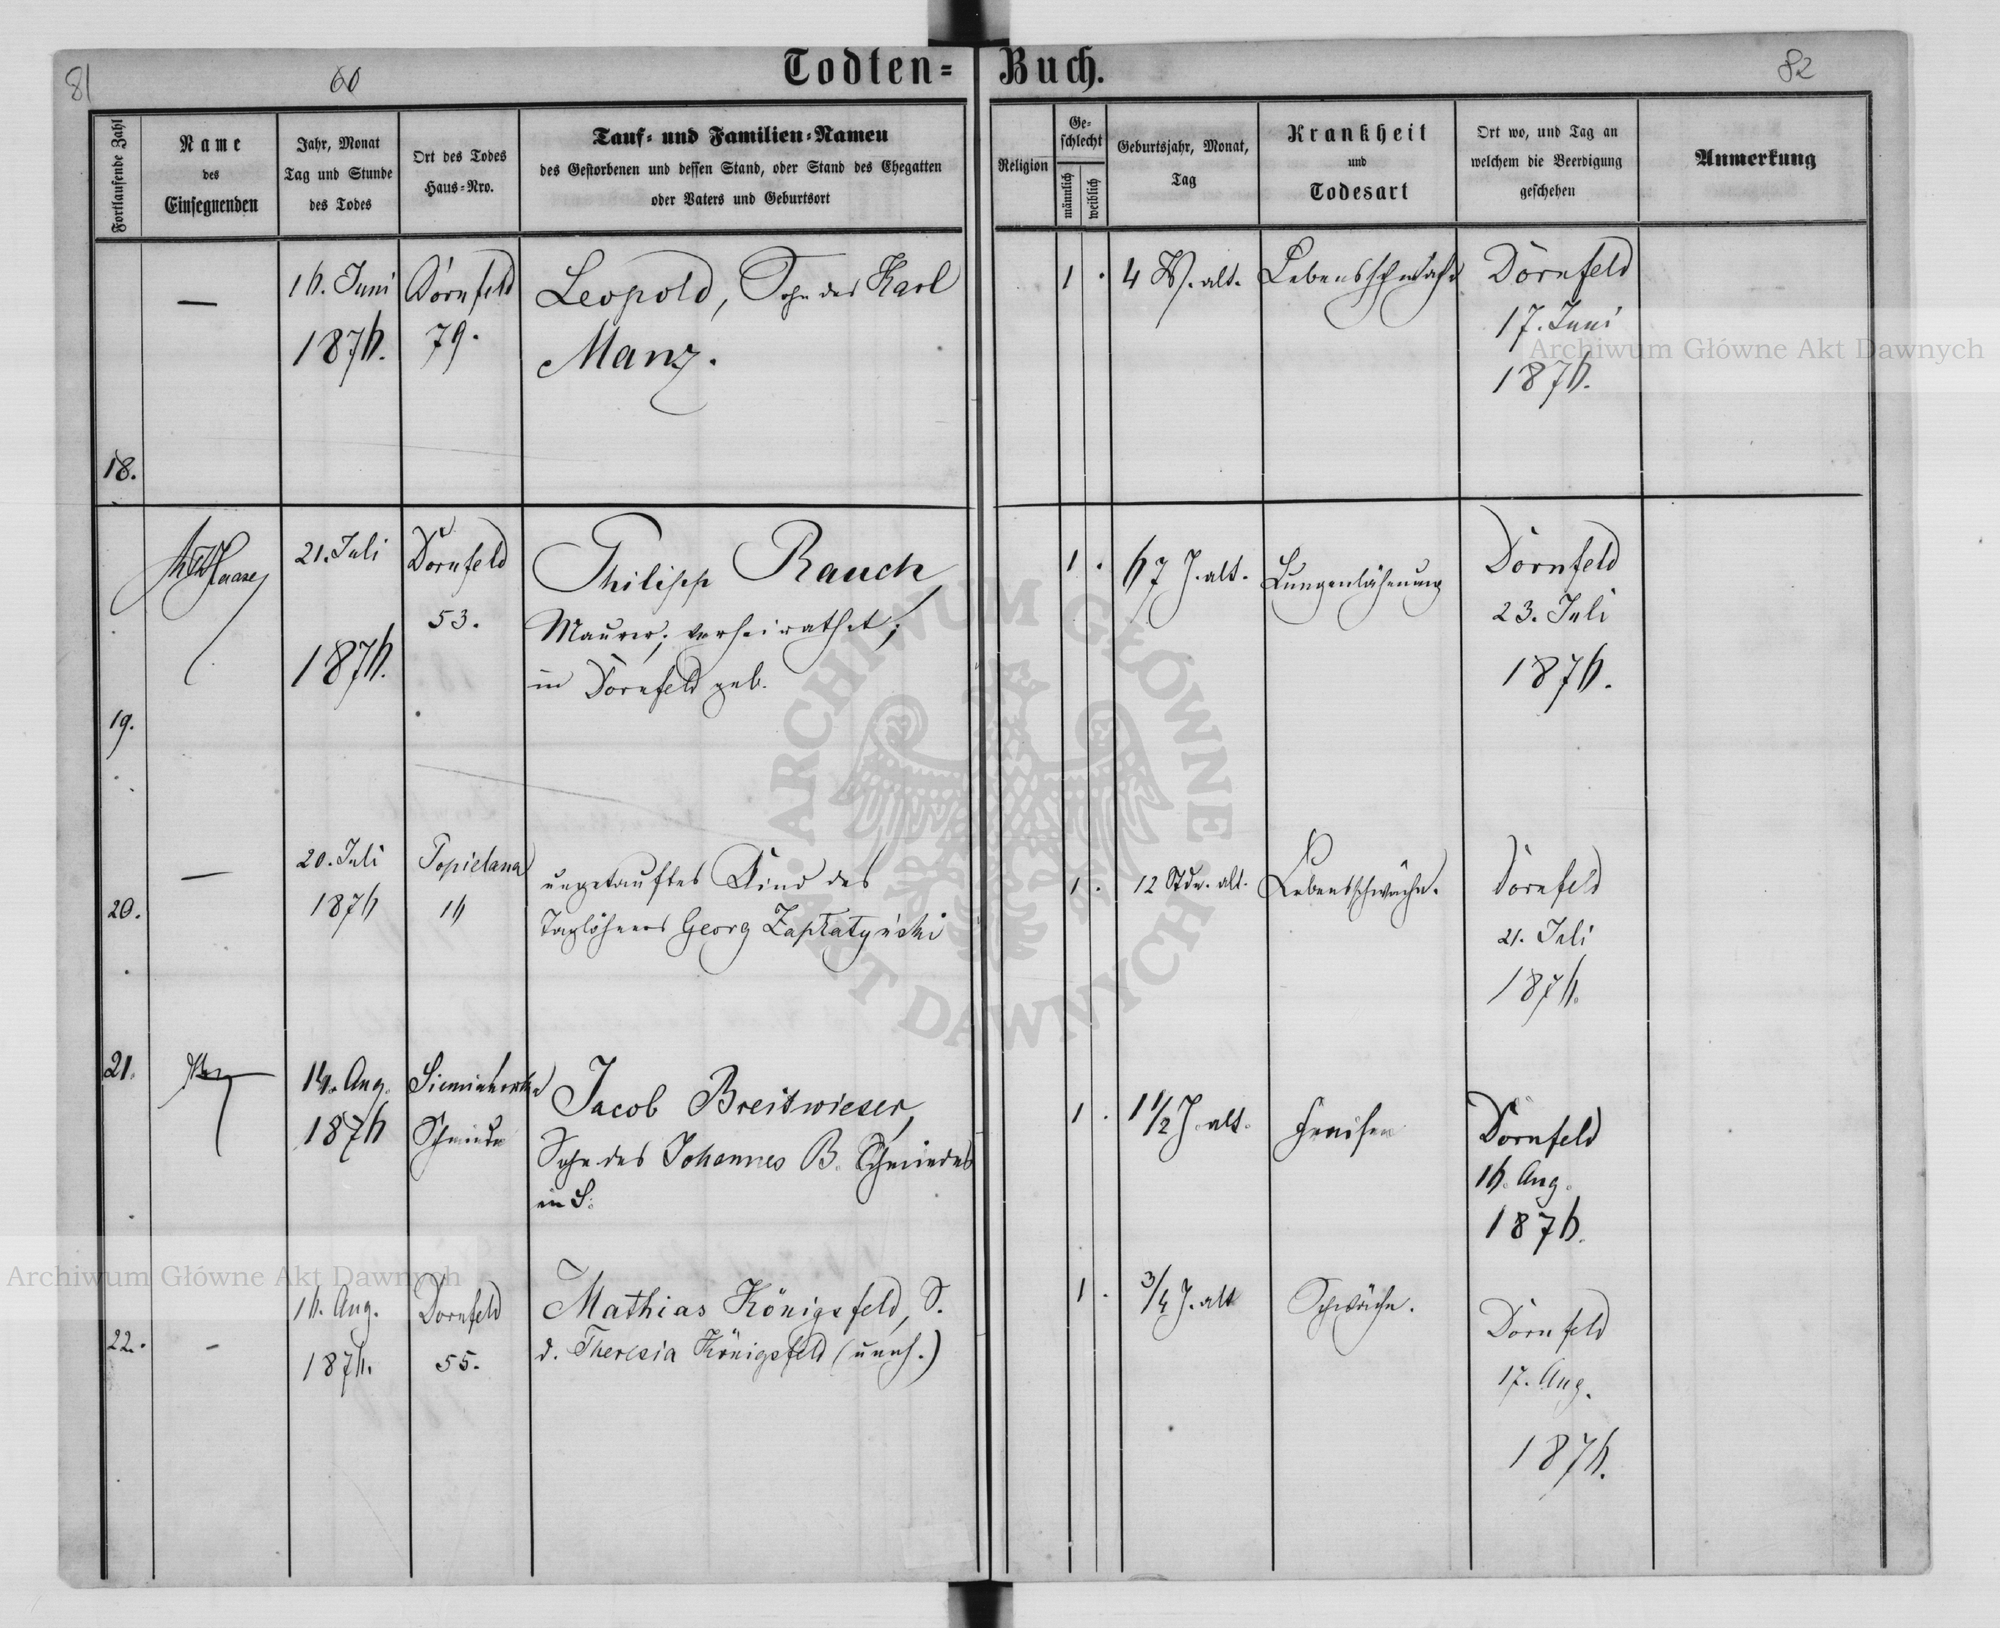 81
60
Todten=
Buch.
82
Fortlaufende Zahl
Name
des
Einsegnenden
Jahr, Monat
Tag und Stunde
des Todes
Ort des Todes
Haus=Nro.
Tauf= und Familien=Namen
des Gestorbenen und dessen Stand, oder Stand des Ehegatten
oder Vaters und Geburtsort
Religion
Ge=
schlecht
männlich
weiblich
Geburtsjahr, Monat,
Tag
Krankheit
und
Todesart
Ort wo, und Tag an
welchem die Beerdigung
geschehen
Anmerkung
18.
—
16. Juni
1876.
Dornfeld
79.
Leopold, Sohn des Karl
Manz.
1 .
4 W. alt.
Lebensschwäche
Dornfeld
17. Juni
1876.
19.
21. Juli
1876.
Dornfeld
53.
Philipp Rauch,
Maurer; verheirathet;
in Dornfeld geb.
1 .
67 J. alt.
Lungenlähmung
Dornfeld
23. Juli
1876.
20.
—
20. Juli
1876
Topielana
16
ungetauftes Kind des
Taglöhners Georg Zapłatyński
1 .
12 Stdn. alt.
Lebensschwäche.
Dornfeld
21. Juli
1876.
21.
14. Aug.
1876
Schmiede
Jacob Breitwieser,
Sohn des Johannes B. Schmiedes
in S.
1 .
1 1/2 J. alt.
Fraisen
Dornfeld
16. Aug.
1876.
22.
–
16. Aug.
1876.
Dornfeld
55.
Mathias Königsfeld, S.
d. Theresia Königsfeld (uneh.)
1 .
3/4 J. alt
Schwäche.
Dornfeld
17. Aug.
1876.
Archiwum Główne Akt Dawnych
ARCHIWUM GŁÓWNE
AKT DAWNYCH
Archiwum Główne Akt Dawnych